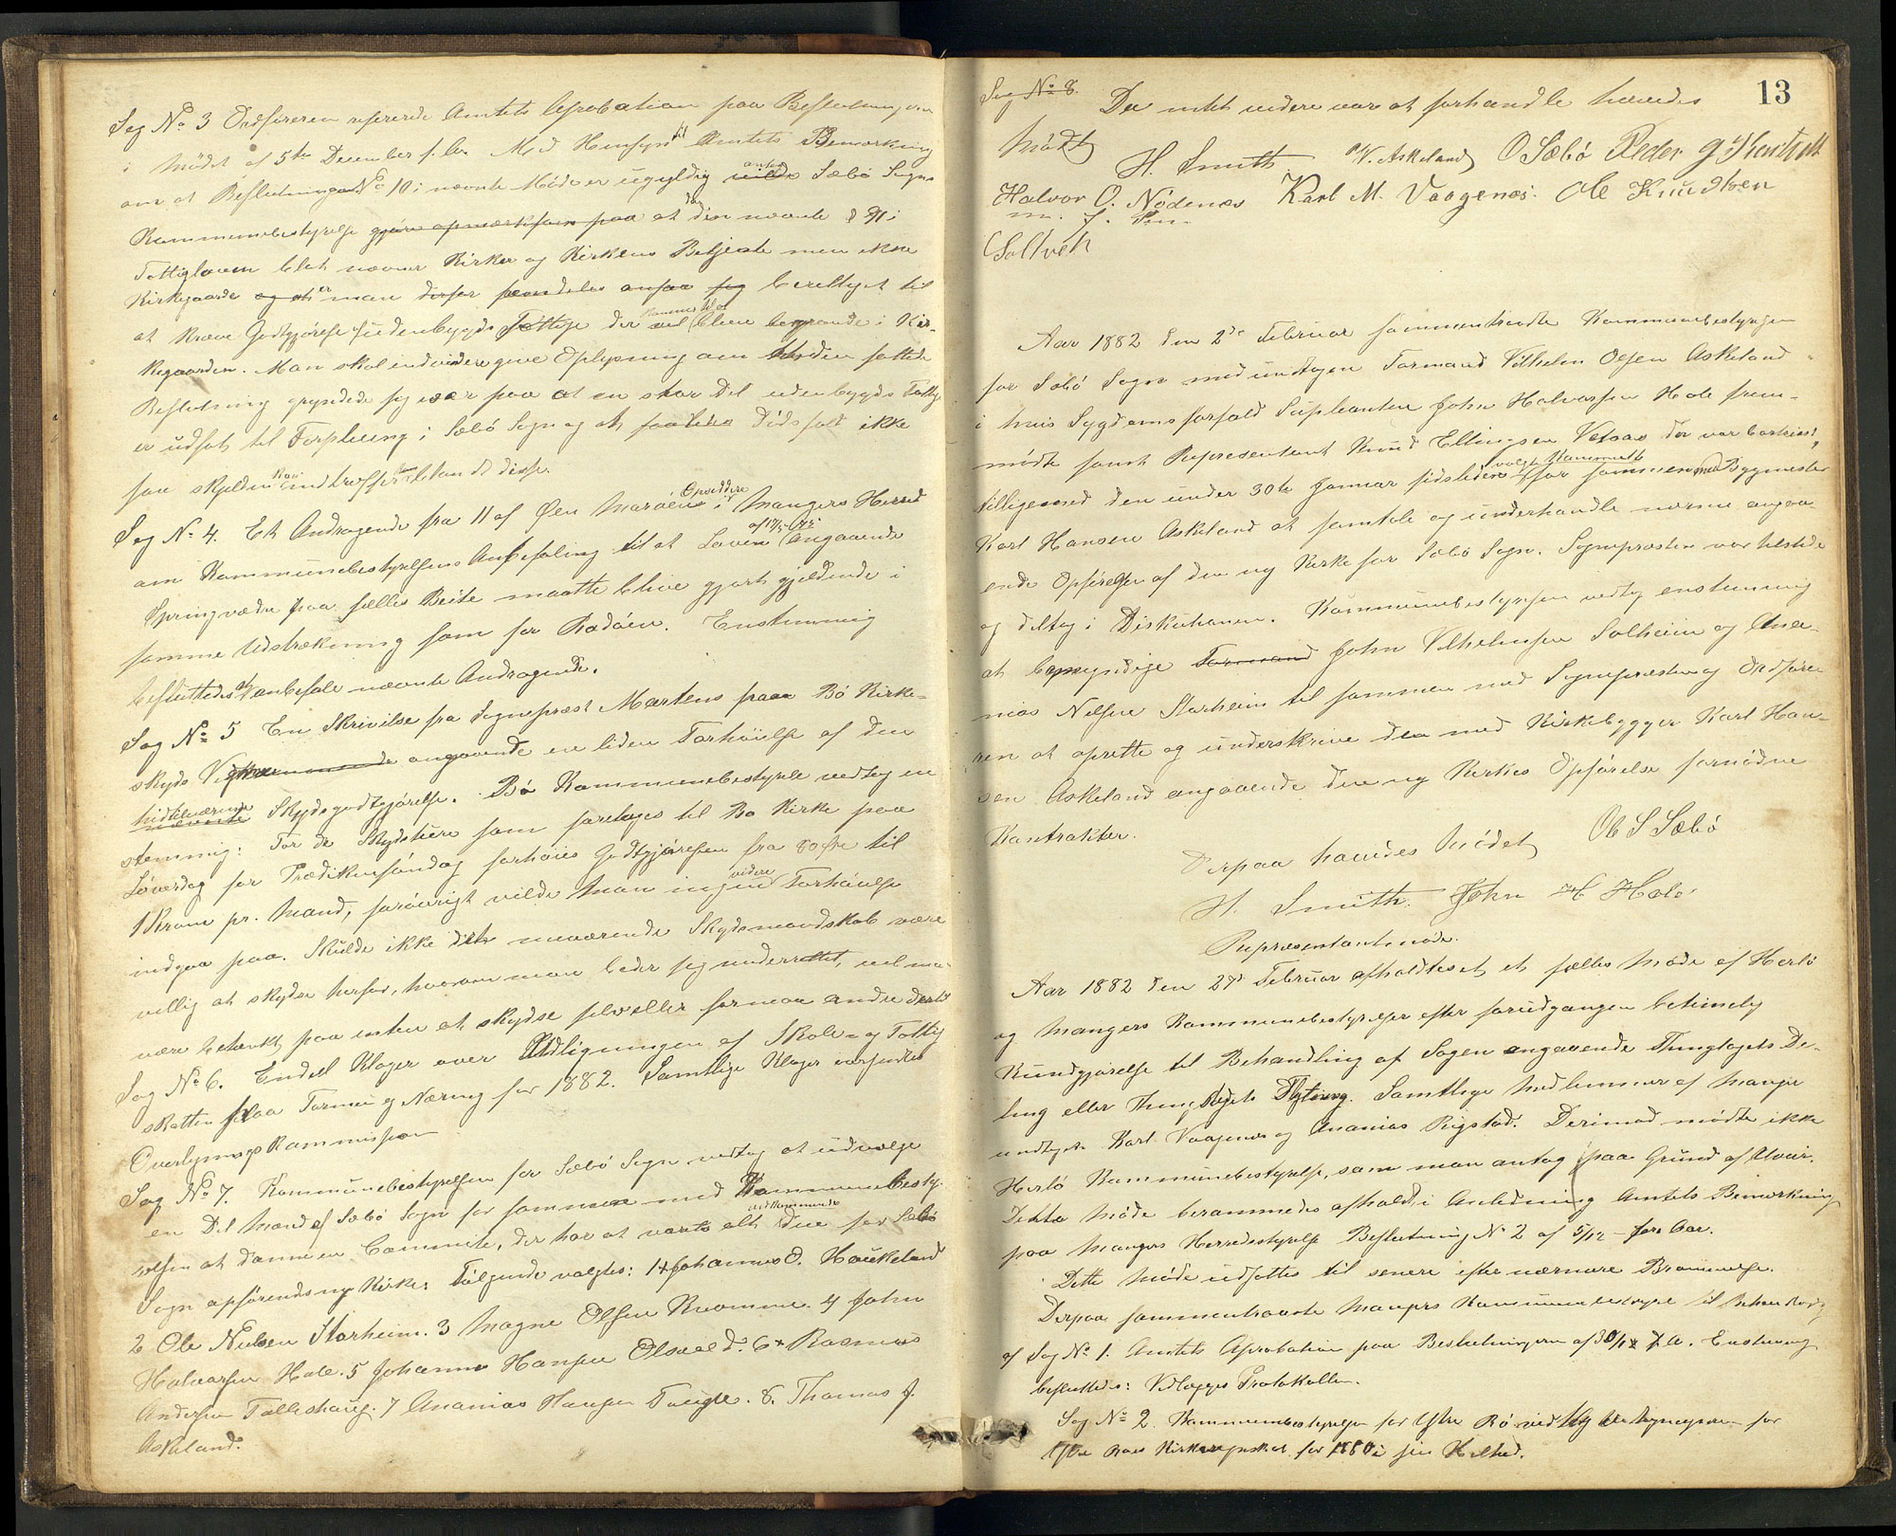 Sag No 3 Ordføreren refererede Amtets Aprobation paa Beslutningen
i Mødet af 5te December f. A. Med Hensyn til Amtets Bemærkning
om at Beslutningen No 10 i nævnte Møde er ugyldig antog Sæbø Sogns
Kommunebestyrelse gjøre opmærksom paa at den nævnte § 91 i
Fattigloven blot nævner Kirker og Kirkens Betjente men ikke
Kirkegaarde og at er man derfor berettiget til
at kræve Godtgjørelse udenbygds Fattige der vil blive begravede i Kir-
kegaarden. Man skal endvidere give Oplysning om at den fattede
Beslutning grundede sig især paa at en stor Del udenbygds Fattige
er udsat til Forpleining i Sæbø Sogn og at Dødsfald ikke
saa sjelden kan indtræffe iblandt disse.
Sag No 4. Et Andragende fra 11 af Øen Marøens Opsiddere i Mangers Herred
om Kommunebestyrelsens Anbefaling til at Loven angaaende
Springvædre paa fælles Beite maatte blive gjort gjeldende i
samme Udstrækning som for Radøen. Enstemmig
besluttedes at anbefale nævnte Andragende.
Sag No 5 En Skrivelse fra Sognepræst Martens paa Bø Kirke-
skyds Vegne angaaende en liden Forhøielse af den
hidtilværende Skydsgodtgjørelse. Bø Kommunebestyrelse vedtog en
stemmig: For de Skydsture som foretages til Bø Kirke paa
Løverdag før Prædikensøndag forhøies Godtgjørelsen fra 80 Øre til
1 Krone pr. Mand, forøvrigt vilde man ingen videre Forhøielse
indgaa paa. Skulde ikke det nuværende Skydsmandskab være
villig at skydse herfor, hvorom man beder sig underrettet, vil man
være betænkt paa enten at skydse selv eller formaa andre dertil
Sag No 6. Endel Klager over Udligningen af Skole- og Fattig
skatten paa Formue og Næring for 1882. Samtlige Klager oversendes
Overligningskommission
Sag No 7. Kommunebestyrelsen for Sæbø Sogn vedtog at udvælge
en Del Mænd af Sæbø Sogn for sammen med Kommunebesty-
relsen at danne en Committe, der har at varetage alt vedkommende den for Sæbø
Sogn opførendes ny Kirke. Følgende valgtes: 1 Johannes O. Haukeland
2 Ole Nielsen Storheim. 3 Magne Olsen Kvamme. 4 John
Halvorsen Hole. 5 Johannes Hansen Olsvold. 6 Rasmus
Andersen Falleshaug. 7 Ananias Hansen Tveiten. 8. Thomas J.
Askeland.
13
Sag No 8. Da intet videre var at forhandle hævedes
Mødet
H. Smith V. Askeland O Sæbø Peder J Knudsen
Halvor O. Nødenes Karl M. Vaagenes. Ole Knudsen
m. f. Pen
Soltveit
Aar 1882 den 2de Februar sammentraadte Kommunebestyrelsen
for Sæbø Sogn med undtagen Formand Vilhelm Olsen Askeland
i hvis Sygdomsforfald Supleanten John Halvorsen Hole frem-
mødte samt Representant Knud Ellingsen Vetaas der var bortreist,
tilligemed den under 30te Januar sidstleden valgte Kommitte for sammen med Bygmester
Karl Hansen Askeland at samtale og underhandle nærmere angaa-
ende Opførelsen af den ny Kirke for Sæbø Sogn. Sognepræsten var tilstede
og deltog i Diskutionen. Kommunebestyrelsen vedtog enstemmig
at bemyndige Formand John Vilhelmsen Solheim og Ana-
nias Nilsen Storheim til sammen med Sognepræsten og Ordføre-
ren at oprette og underskrive den med Kirkebygger Karl Han-
sen Askeland angaaende den ny Kirkes Opførelse fornødne
Kontrakter.
Derpaa hævedes Mødet Ole S Sæbø
H. Smith. John H Hole
Repræsentantmøde.
Aar 1882 den 27de Februar afholdtes et fælles Møde af Herlø
og Mangers Kommunebestyrelser efter forudgangen betimelig
Kundgjørelse til Behandling af Sagen angaaende Thinglagets De-
ling eller Thingstedets Flytning. Samtlige Medlemmer af Manger
undtagen Karl Vaagenes og Ananias Rigstad. Derimod mødte ikke
Herlø Kommunebestyrelse, som man antog paa Grund af Uveir.
Dette Møde berammedes afholdt i Anledning Amtets Bemærkning
paa Mangers Herredsstyrelses Beslutning No 2 af 5/12 - f. Aar.
Dette Møde udsattes til senere efter nærmere Berammelse.
Derpaa sammentraadte Mangers Kommunebestyrelse til Behandling
af Sag No 1. Amtets Aprobation paa Beslutningerne af 30/1 d. A. Enstemmig
besluttedes: Vedlægges Protokollen.
Sag No 2. Kommunebestyrelsen for Ytre Bø vedtog
Ytre Bøes Kirkeregnskab for 1880 i sin Helhed.